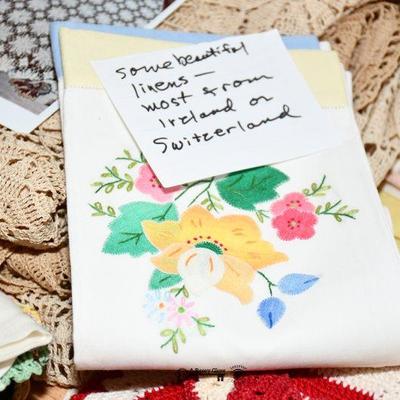 some beautiful
linens —
most from
Ireland or
Switzerland